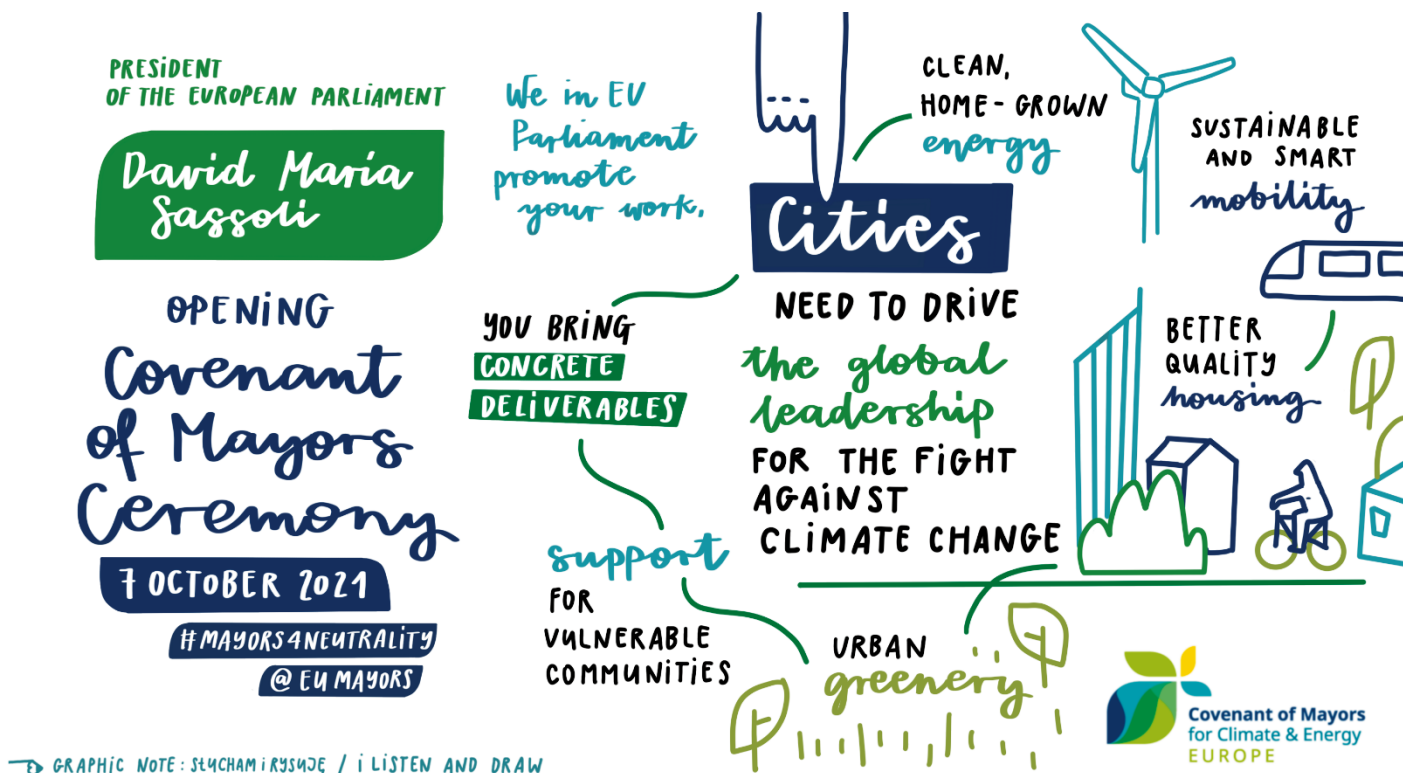 PRESiDENT
OF THE EUROPEAN PARLIAMENT
David Maria
Sassoli
OPENiNG
Covenant
of Mayors
Ceremony
7 OCTOBER 2021
#MAYORS4NEUTRALiTY
@ EU MAYORS
We in EU
Parliament
promote
your work.
YOU BRiNG
CONCRETE
DELiVERABLES
support
FOR
VULNERABLE
COMMUNiTiES
Cities
NEED TO DRiVE
the global
leadership
FOR THE FiGHT
AGAiNST
CLiMATE CHANGE
CLEAN,
HOME-GROWN
energy
SUSTAiNABLE
AND SMART
mobility
BETTER
QUALiTY
housing
URBAN
greenery
Covenant of Mayors
for Climate & Energy
EUROPE
GRAPHiC NOTE: SŁUCHAM i RYSUJĘ / i LiSTEN AND DRAW